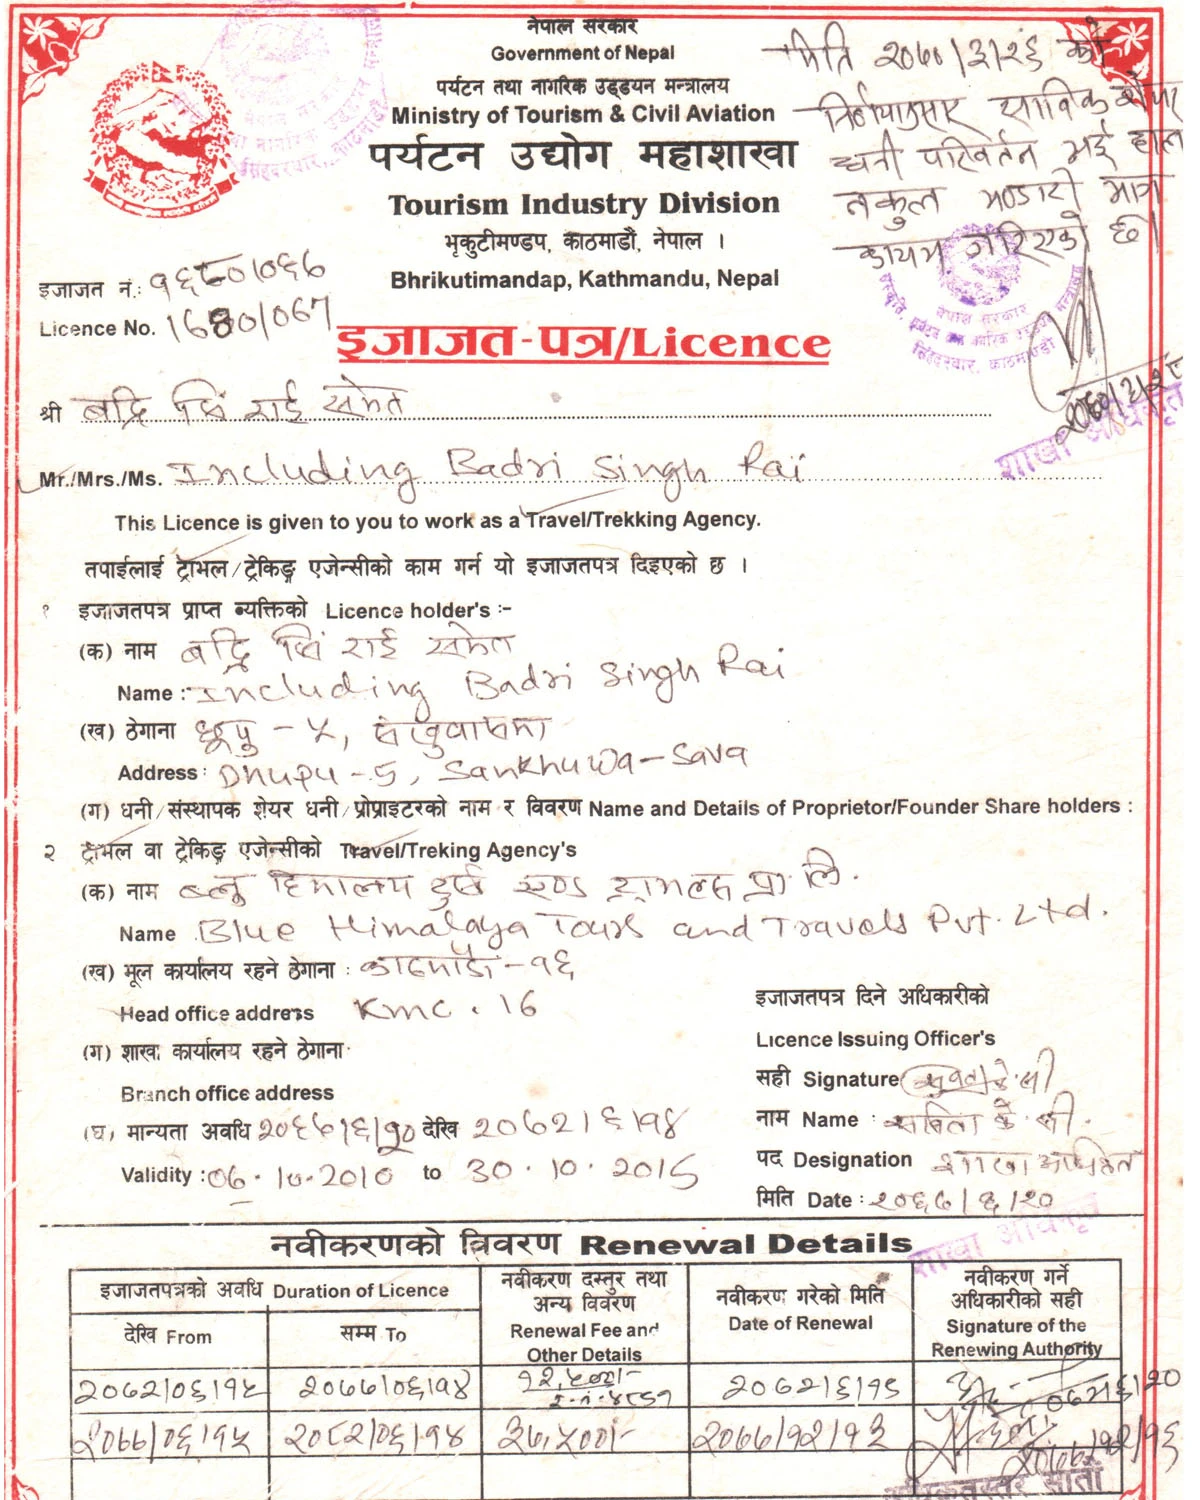 नेपाल सरकार
Government of Nepal
पर्यटन तथा नागरिक उड्डयन मन्त्रालय
Ministry of Tourism & Civil Aviation
पर्यटन उद्योग महाशाखा
Tourism Industry Division
भृकुटीमण्डप, काठमाडौं, नेपाल ।
Bhrikutimandap, Kathmandu, Nepal
मिति २०७०/३/२६ को
निर्णयानुसार साविक शेयर
धनी परिवर्तन भई हाल
नकुल भण्डारी मात्र
कायम गरिएको छ।
इजाजत नं.: १६८०/०६७
Licence No. 1680/067
इजाजत-पत्र/Licence
नेपाल सरकार
सिंहदरबार, काठमाण्डौ
शाखा अधिकृत
श्री बद्रि सिं राई समेत
Mr./Mrs./Ms. Including Badri Singh Rai
This Licence is given to you to work as a Travel/Trekking Agency.
तपाईलाई ट्राभल/ट्रेकिङ्ग एजेन्सीको काम गर्न यो इजाजतपत्र दिइएको छ ।
१ इजाजतपत्र प्राप्त व्यक्तिको Licence holder's :-
(क) नाम बद्रि सिं राई समेत
Name : Including Badri Singh Rai
(ख) ठेगाना धुपु - ५, संखुवासभा
Address : Dhupu - 5, Sankhuwa-Sava
(ग) धनी/संस्थापक शेयर धनी/प्रोप्राइटरको नाम र विवरण Name and Details of Proprietor/Founder Share holders :
२ ट्राभल वा ट्रेकिङ्ग एजेन्सीको Travel/Treking Agency's
(क) नाम ब्लू हिमालय टुर्स एण्ड ट्राभल्स प्रा. लि.
Name Blue Himalaya Tours and Travels Pvt. Ltd.
(ख) मूल कार्यालय रहने ठेगाना : काठमाडौं - १६
Head office address KMC. 16
(ग) शाखा कार्यालय रहने ठेगाना
Branch office address
(घ) मान्यता अवधि २०६७/६/२० देखि २०७२/६/१४
Validity : 06.10.2010 to 30.10.2015
इजाजतपत्र दिने अधिकारीको
Licence Issuing Officer's
सही Signature
नाम Name : सबिता के.सी.
पद Designation शाखा अधिकृत
मिति Date : २०६७/६/२०
शाखा अधिकृत
नवीकरणको विवरण Renewal Details
इजाजतपत्रको अवधि Duration of Licence
देखि From
सम्म To
नवीकरण दस्तुर तथा
अन्य विवरण
Renewal Fee and
Other Details
नवीकरण गरेको मिति
Date of Renewal
नवीकरण गर्ने
अधिकारीको सही
Signature of the
Renewing Authority
२०७२/०६/१५ २०७७/०६/१४ १२,५००/- २०७२/६/१५
२०७७/०६/१५ २०८२/०६/१४ ३७,५००/- २०७७/१२/१३